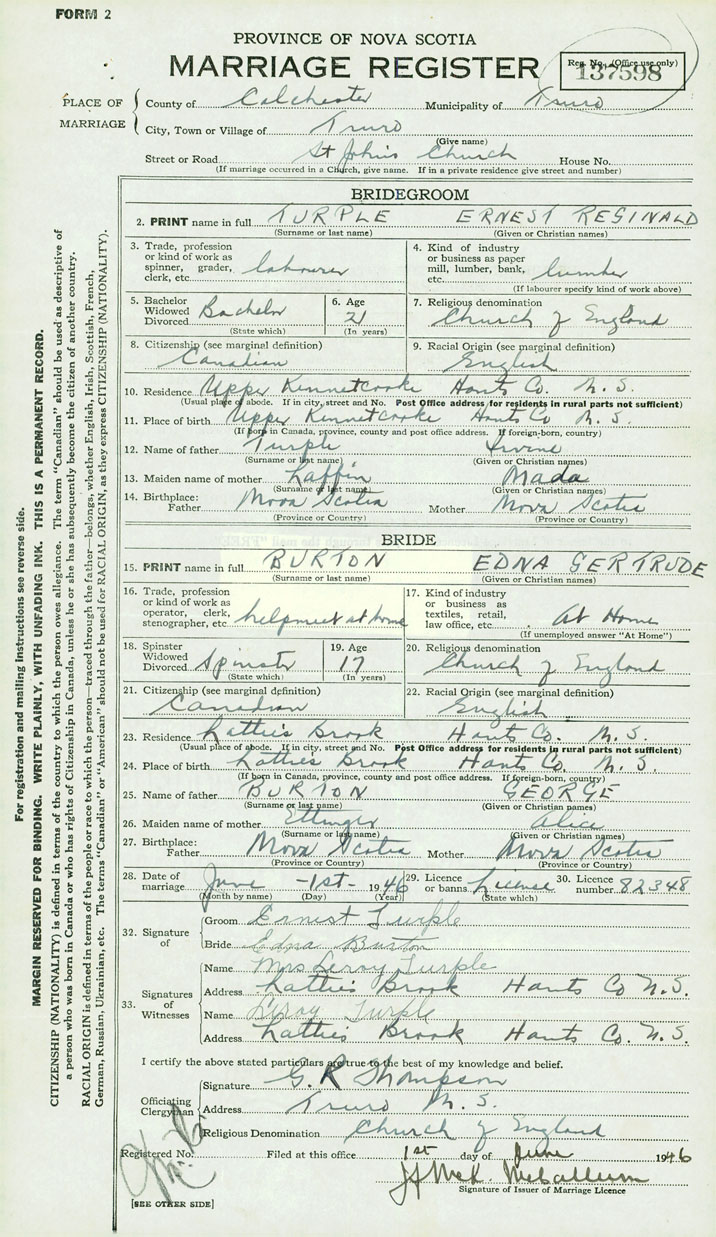 FORM 2
PROVINCE OF NOVA SCOTIA
MARRIAGE REGISTER
Reg. No. (Office use only)
137598
PLACE OF MARRIAGE
County of Colchester Municipality of Truro
City, Town or Village of Truro
(Give name)
Street or Road St John's Church House No.
(If marriage occurred in a Church, give name. If in a private residence give street and number)
BRIDEGROOM
2. PRINT name in full TURPLE ERNEST REGINALD
(Surname or last name) (Given or Christian names)
3. Trade, profession or kind of work as spinner, grader, clerk, etc. labourer
4. Kind of industry or business as paper mill, lumber, bank, etc. lumber
(If labourer specify kind of work above)
5. Bachelor Widowed Divorced Bachelor
(State which)
6. Age 21
(In years)
7. Religious denomination
Church of England
8. Citizenship (see marginal definition)
Canadian
9. Racial Origin (see marginal definition)
English
10. Residence Upper Kennetcooke Hants Co. N. S.
(Usual place of abode. If in city, street and No. Post Office address for residents in rural parts not sufficient)
11. Place of birth Upper Kennetcooke Hants Co N. S.
(If born in Canada, province, county and post office address. If foreign-born, country)
12. Name of father Turple Irvine
(Surname or last name) (Given or Christian names)
13. Maiden name of mother Laffin Mada
(Surname or last name) (Given or Christian names)
14. Birthplace: Father Nova Scotia Mother Nova Scotia
(Province or Country) (Province or Country)
BRIDE
15. PRINT name in full BURTON EDNA GERTRUDE
(Surname or last name) (Given or Christian names)
16. Trade, profession or kind of work as operator, clerk, stenographer, etc. helpmeet at home
17. Kind of industry or business as textiles, retail, law office, etc. At Home
(If unemployed answer "At Home")
18. Spinster Widowed Divorced Spinster
(State which)
19. Age 17
(In years)
20. Religious denomination
Church of England
21. Citizenship (see marginal definition)
Canadian
22. Racial Origin (see marginal definition)
English
23. Residence Latties Brook Hants Co. N. S.
(Usual place of abode. If in city, street and No. Post Office address for residents in rural parts not sufficient)
24. Place of birth Latties Brook Hants Co. N. S.
(If born in Canada, province, county and post office address. If foreign-born, country)
25. Name of father BURTON GEORGE
(Surname or last name) (Given or Christian names)
26. Maiden name of mother Ettinger Alice
(Surname or last name) (Given or Christian names)
27. Birthplace: Father Nova Scotia Mother Nova Scotia
(Province or Country) (Province or Country)
28. Date of marriage June -1st- 1946
(Month by name) (Day) (Year)
29. Licence or banns License
(State which)
30. Licence number 82348
32. Signature of
Groom Ernest Turple
Bride Edna Burton
33. Signatures of Witnesses
Name Mrs Leroy Turple
Address Latties Brook Hants Co N.S.
Name Leroy Turple
Address Latties Brook Hants Co. N. S.
I certify the above stated particulars are true to the best of my knowledge and belief.
Officiating Clergyman
Signature G. R Thompson
Address Truro N. S.
Religious Denomination Church of England
Registered No. Filed at this office 1st day of June 1946
McCallum
Signature of Issuer of Marriage Licence
[SEE OTHER SIDE]
For registration and mailing instructions see reverse side.
MARGIN RESERVED FOR BINDING. WRITE PLAINLY, WITH UNFADING INK. THIS IS A PERMANENT RECORD.
CITIZENSHIP (NATIONALITY) is defined in terms of the country to which the person owes allegiance. The term "Canadian" should be used as descriptive of
a person who was born in Canada or who has rights of Citizenship in Canada, unless he or she has subsequently become the citizen of another country.
RACIAL ORIGIN is defined in terms of the people or race to which the person—traced through the father—belongs, whether English, Irish, Scottish, French,
German, Russian, Ukrainian, etc. The terms "Canadian" or "American" should not be used for RACIAL ORIGIN, as they express CITIZENSHIP (NATIONALITY).